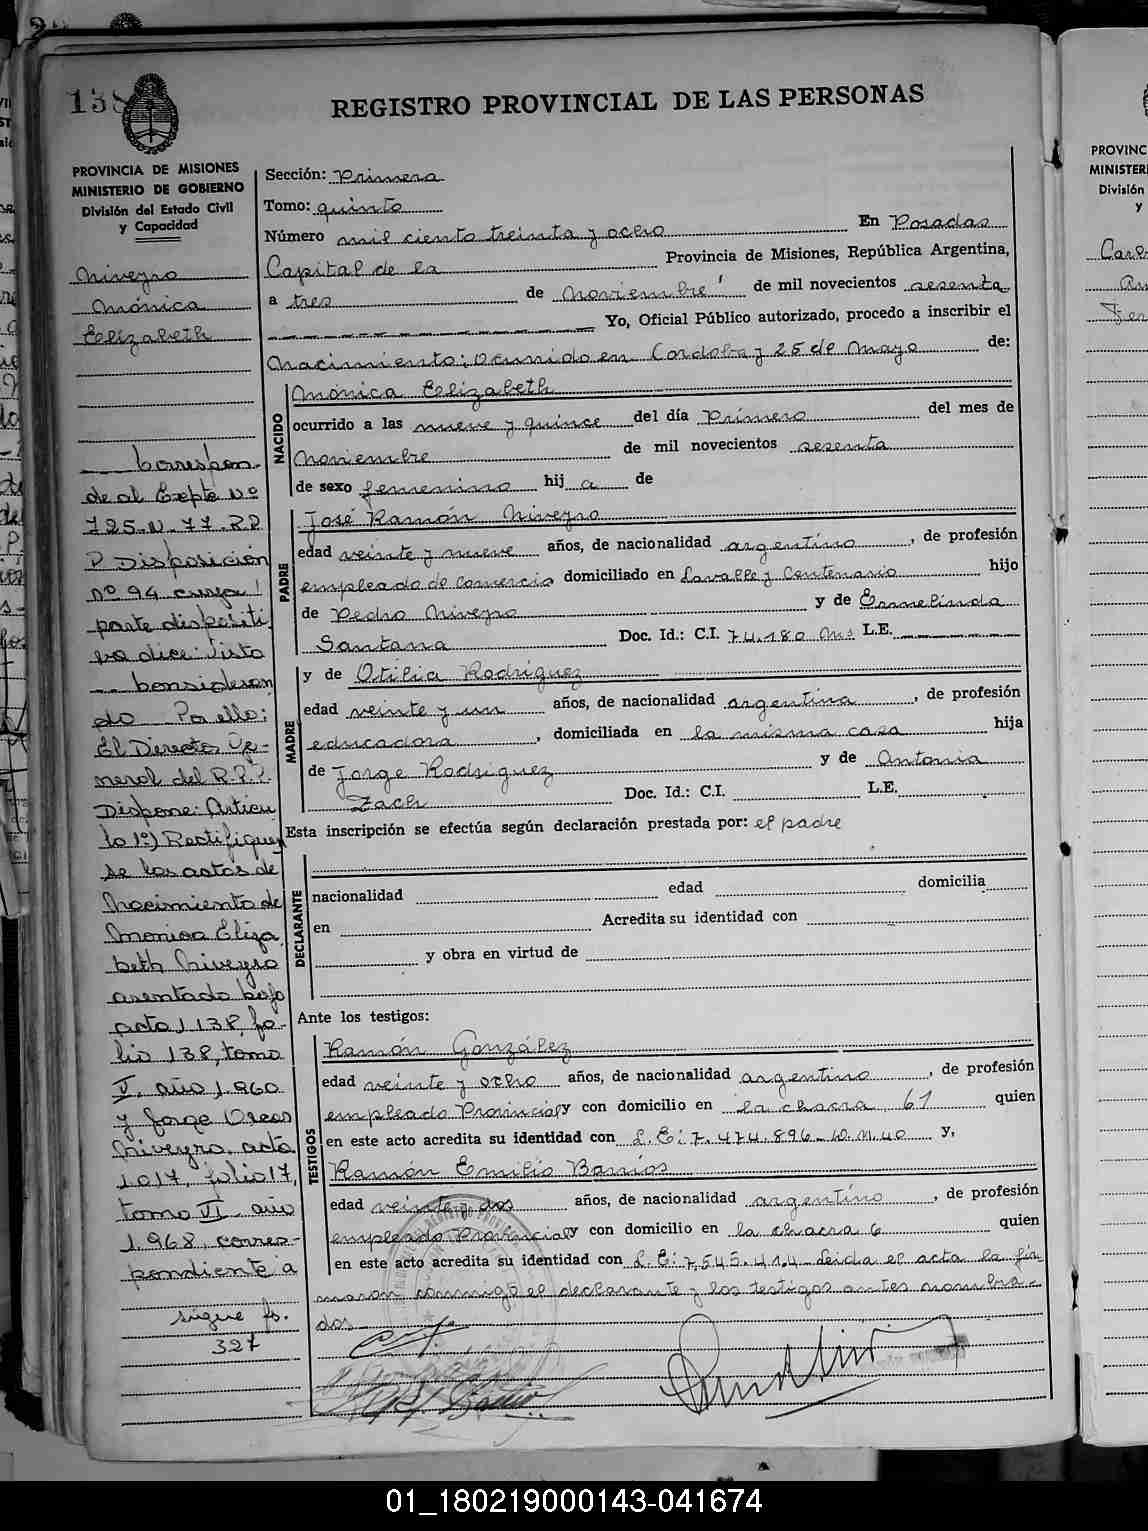 138
REGISTRO PROVINCIAL DE LAS PERSONAS
PROVINCIA DE MISIONES
MINISTERIO DE GOBIERNO
División del Estado Civil
y Capacidad
Niveyro
Mónica
Elizabeth
Correspon-
de al Expte Nº
725-N-77-R.P.
P Disposición
nº 94 cuya
parte dispositi
va dice: Visto
Consideran
do Por ello:
El Director Ge-
neral del R.P.P.
Dispone: Artícu
lo 1º) Rectifíquen
se las actas de
Nacimiento de
Monica Eliza
beth Niveyro
asentado bajo
acta 1138, fo-
lio 138, tomo
V, año 1.960
y Jorge Oscar
Niveyro, acta
1017, folio 17,
tomo VI, año
1.968, corres-
pondiente a
sigue fs.
327
Sección: Primera
Tomo: quinto
Número mil ciento treinta y ocho En Posadas
Capital de la Provincia de Misiones, República Argentina,
a tres de Noviembre de mil novecientos sesenta
Yo, Oficial Público autorizado, procedo a inscribir el
Nacimiento; Ocurrido en Cordoba y 25 de Mayo de:
NACIDO
Mónica Elizabeth
ocurrido a las nueve y quince del día Primero del mes de
Noviembre de mil novecientos sesenta
de sexo femenino hij a de
PADRE
José Ramón Niveyro
edad veinte y nueve años, de nacionalidad argentino, de profesión
empleado de Comercio domiciliado en Lavalle y Centenario hijo
de Pedro Niveyro y de Ermelinda
Santana Doc. Id.: C.I. 74.180 Ms L.E.
MADRE
y de Otilia Rodríguez
edad veinte y un años, de nacionalidad argentina, de profesión
educadora, domiciliada en la misma casa hija
de Jorge Rodriguez y de Antonia
Zach Doc. Id.: C.I. L.E.
Esta inscripción se efectúa según declaración prestada por: el padre
DECLARANTE
nacionalidad edad domicilia
en Acredita su identidad con
y obra en virtud de
Ante los testigos:
TESTIGOS
Ramón González
edad veinte y ocho años, de nacionalidad argentino, de profesión
empleado Provincial y con domicilio en la chacra 61 quien
en este acto acredita su identidad con L.E: 7.474.896-D.M.40 y,
Ramón Emilio Barrios
edad veinte y dos años, de nacionalidad argentino, de profesión
empleado Provincial y con domicilio en la chacra 6 quien
en este acto acredita su identidad con L.E: 7.545.414 - Leida el acta la fir-
maron conmigo el declarante y los testigos antes nombra-
dos
PROVINC
MINISTER
División
y
01_180219000143-041674